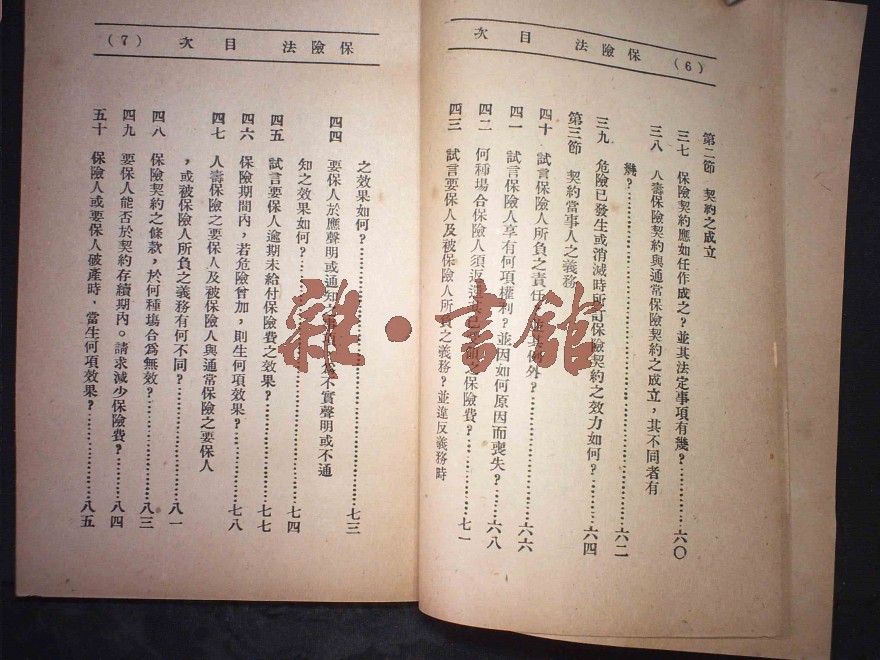 保險法 目次 (6)
第二節 契約之成立
三七 保險契約應如任作成之？並其法定事項有幾？……六〇
三八 人壽保險契約與通常保險契約之成立，其不同者有
幾？……六二
三九 危險已發生或消滅時所訂保險契約之效力如何？……六四
第三節 契約當事人之義務
四十 試言保險人所負之責任，並其例外？……六六
四一 試言保險人享有何項權利？並因如何原因而喪失？……六八
四二 何種場合保險人須返還其已之保險費？……七一
四三 試言要保人及被保險人所負之義務？並違反義務時
保險法 目次 (7)
之效果如何？……七三
四四 要保人於應聲明或通知之事項，為不實聲明或不通
知之效果如何？……七四
四五 試言要保人逾期未給付保險費之效果？……七七
四六 保險期間內，若危險曾加，則生何項效果？……七八
四七 人壽保險之要保人及被保險人與通常保險之要保人
，或被保險人所負之義務有何不同？……八一
四八 保險契約之條款，於何種場合爲無效？……八三
四九 要保人能否於契約存續期內。請求減少保險費？……八四
五十 保險人或要保人破產時，當生何項效果？……八五
雜·書館